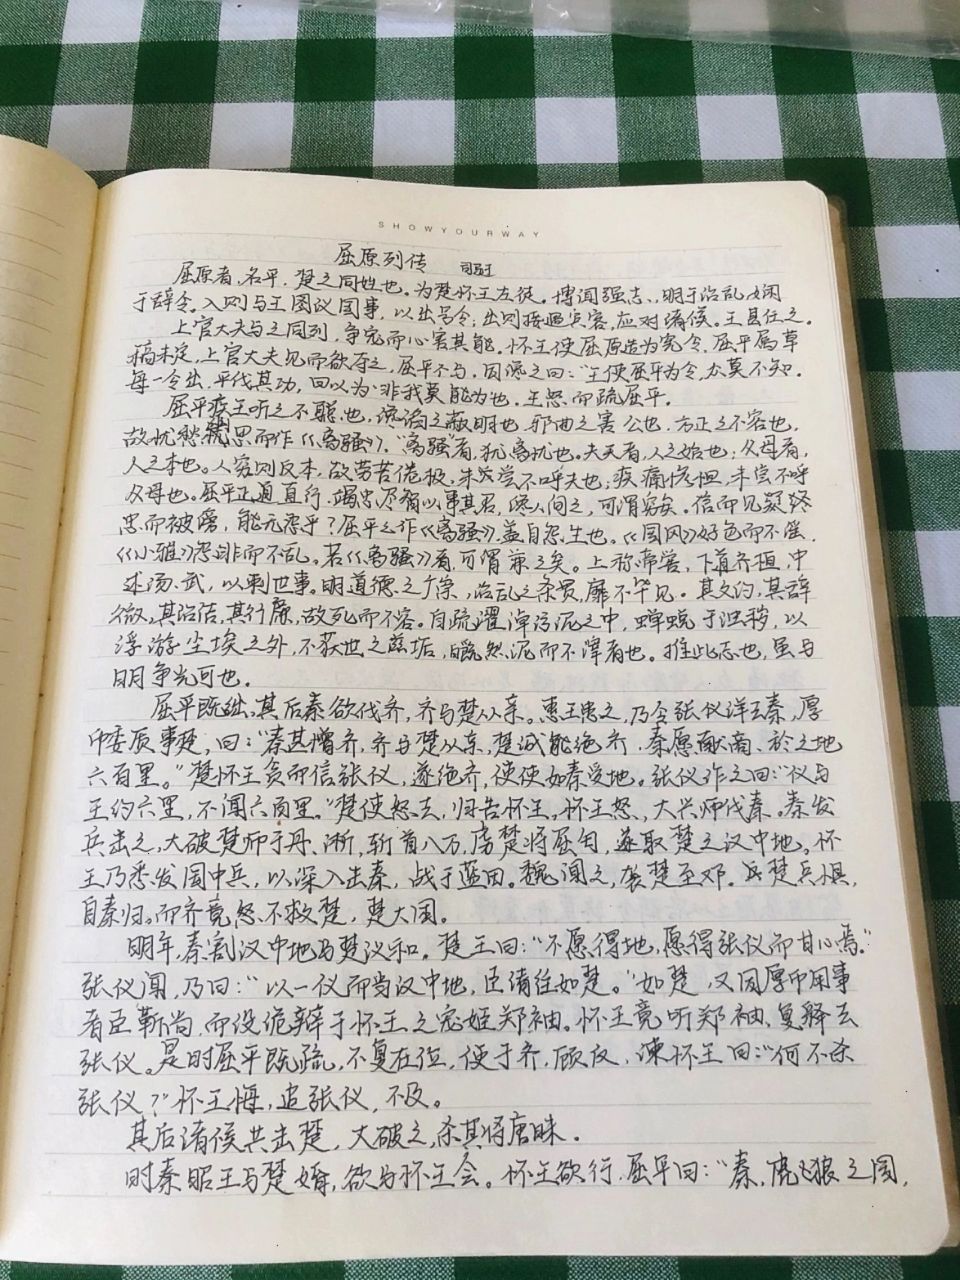 SHOWYOURWAY
屈原列传 司马迁
屈原者,名平,楚之同姓也。为楚怀王左徒。博闻强志,明于治乱,娴
于辞令。入则与王图议国事,以出号令;出则接遇宾客,应对诸侯。王甚任之。
上官大夫与之同列,争宠而心害其能。怀王使屈原造为宪令,屈平属草
稿未定,上官大夫见而欲夺之,屈平不与,因谗之曰:“王使屈平为令,众莫不知。
每一令出,平伐其功,曰以为‘非我莫能为也。王怒而疏屈平。
屈平疾王听之不聪也,谗谄之蔽明也,邪曲之害公也,方正之不容也,
故忧愁幽思而作《离骚》。“离骚”者,犹离忧也。夫天者,人之始也;父母者,
人之本也。人穷则反本,故劳苦倦极,未尝不呼天也;疾痛惨怛,未尝不呼
父母也。屈平正道直行,竭忠尽智以事其君,谗人间之,可谓穷矣。信而见疑,
忠而被谤,能无怨乎?屈平之作《离骚》,盖自怨生也。《国风》好色而不淫,
《小雅》怨诽而不乱。若《离骚》者,可谓兼之矣。上称帝喾,下道齐桓,中
述汤、武,以刺世事。明道德之广崇,治乱之条贯,靡不毕见。其文约,其辞
微,其治洁,其行廉,故死而不容。自疏濯淖污泥之中,蝉蜕于浊秽,以
浮游尘埃之外,不获世之滋垢,皭然泥而不滓者也。推此志也,虽与
日月争光可也。
屈平既绌,其后秦欲伐齐,齐与楚从亲。惠王患之,乃令张仪详去秦,厚
币委质事楚,曰:“秦甚憎齐,齐与楚从亲,楚诚能绝齐,秦愿献商、於之地
六百里。”楚怀王贪而信张仪,遂绝齐,使使如秦受地。张仪诈之曰:“仪与
王约六里,不闻六百里。”楚使怒去,归告怀王,怀王怒,大兴师伐秦。秦发
兵击之,大破楚师于丹、淅,斩首八万,虏楚将屈匄,遂取楚之汉中地。怀
王乃悉发国中兵,以深入击秦,战于蓝田。魏闻之,袭楚至邓。楚兵惧,
自秦归。而齐竟怒,不救楚,楚大困。
明年,秦割汉中地与楚议和。楚王曰:“不愿得地,愿得张仪而甘心焉。”
张仪闻,乃曰:“以一仪而当汉中地,臣请往如楚。”如楚,又因厚币用事
者臣靳尚,而设诡辩于怀王之宠姬郑袖。怀王竟听郑袖,复释去
张仪。是时屈平既疏,不复在位,使于齐,顾反,谏怀王曰:“何不杀
张仪?”怀王悔,追张仪,不及。
其后诸侯共击楚,大破之,杀其将唐眛。
时秦昭王与楚婚,欲与怀王会。怀王欲行,屈平曰:“秦,虎狼之国,